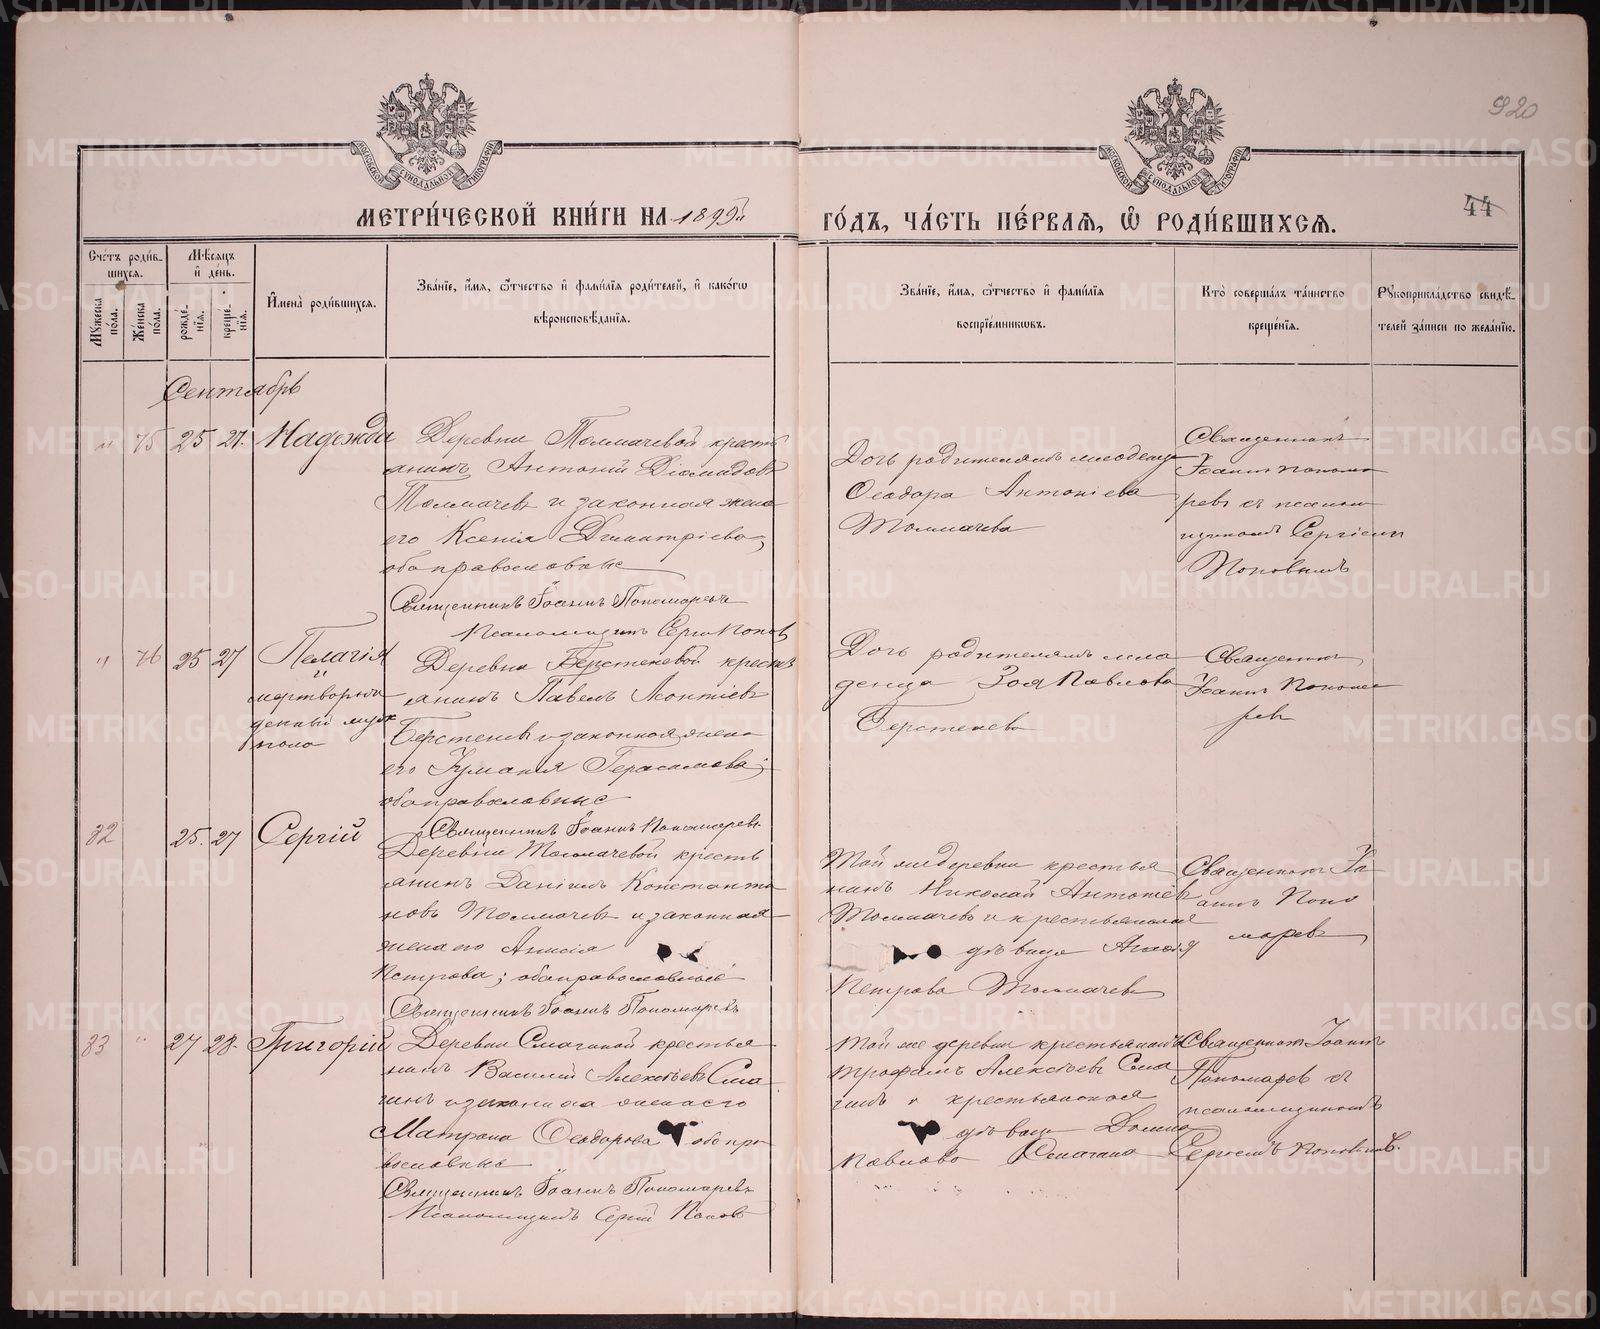 920
МОСКОВСКОЙ СѴНОДАЛЬНОЙ ТИПОГРАФІИ
МОСКОВСКОЙ СѴНОДАЛЬНОЙ ТИПОГРАФІИ
МЕТРИ́ЧЕСКОЙ КНИ́ГИ НА 1895й ГО́ДЪ, ЧА́СТЬ ПЕ́РВАЯ, Ѡ РОДИ́ВШИХСЯ.
44
Сче́тъ роди́в-
шихся.
Мѣсяцъ
и день.
Мꙋжеска
по́ла.
Же́нска
по́ла.
рожде́-
нія.
креще́-
нія.
Имена̀ роди́вшихся.
Зва́ніе, и́мя, ѻ́тчество и фами́лія роди́телей, и како́гѡ
вѣроисповѣ́данія.
Зва́ніе, и́мя, ѻ́тчество и фами́лія
воспріе́мникѡвъ.
Кто̀ соверша́лъ та́инство
креще́нія.
Рꙋкоприкла́дство свидѣ́-
телей за́писи по жела́нію.
Сентябрь
" 75 25 27. Надежда
Деревни Толмачевой кресть
янинъ Антоній Діомидовъ
Толмачевъ и законная жена
его Ксенія Димитріева,
оба православные
Священникъ Іоаннъ Пономаревъ
Псаломщикъ Сергій Поповъ
Дочь родителямъ младенца
Ѳеодора Антоніева
Толмачева
Священникъ
Іоаннъ Понома
ревъ съ псалом
щикомъ Сергіемъ
Поповымъ
" 76 25 27 Пелагія
и
мертворож
денный муж
пола
Деревни Берстеневой кресть
янинъ Павелъ Леонтіевъ
Берстеневъ и законная жена
его Іуліанія Герасимова;
оба православные
Священникъ Іоаннъ Пономаревъ
Дочь родителямъ мла
денца Зоя Павлова
Берстенева
Священникъ
Іоаннъ Понома
ревъ
82 25. 27 Сергій
Деревни Толмачевой кресть
янинъ Даніилъ Константи
новъ Толмачевъ и законная
жена его Анисія
Петрова; оба православные
Священникъ Іоаннъ Пономаревъ
Той же деревни крестья
нинъ Николай Антоніевъ
Толмачевъ и крестьянская
дѣвица
Петрова Толмачева
Священникъ Іо
аннъ Поно
маревъ
83 " 27 28. Григорій
Деревни Смагиной крестья
нинъ Василій Алексѣевъ Сма
гинъ и законная жена его
Матрона Ѳеодорова оба пра
вославные
Священникъ Іоаннъ Пономаревъ
Псаломщикъ Сергій Поповъ
Той же деревни крестьянинъ
Трофимъ Алексѣевъ Сма
гинъ и крестьянская
дѣвица Домна
Павлова Смагина
Священникъ Іоаннъ
Пономаревъ съ
псаломщикомъ
Сергіемъ Поповымъ.
METRIKI.GASO-URAL.RU